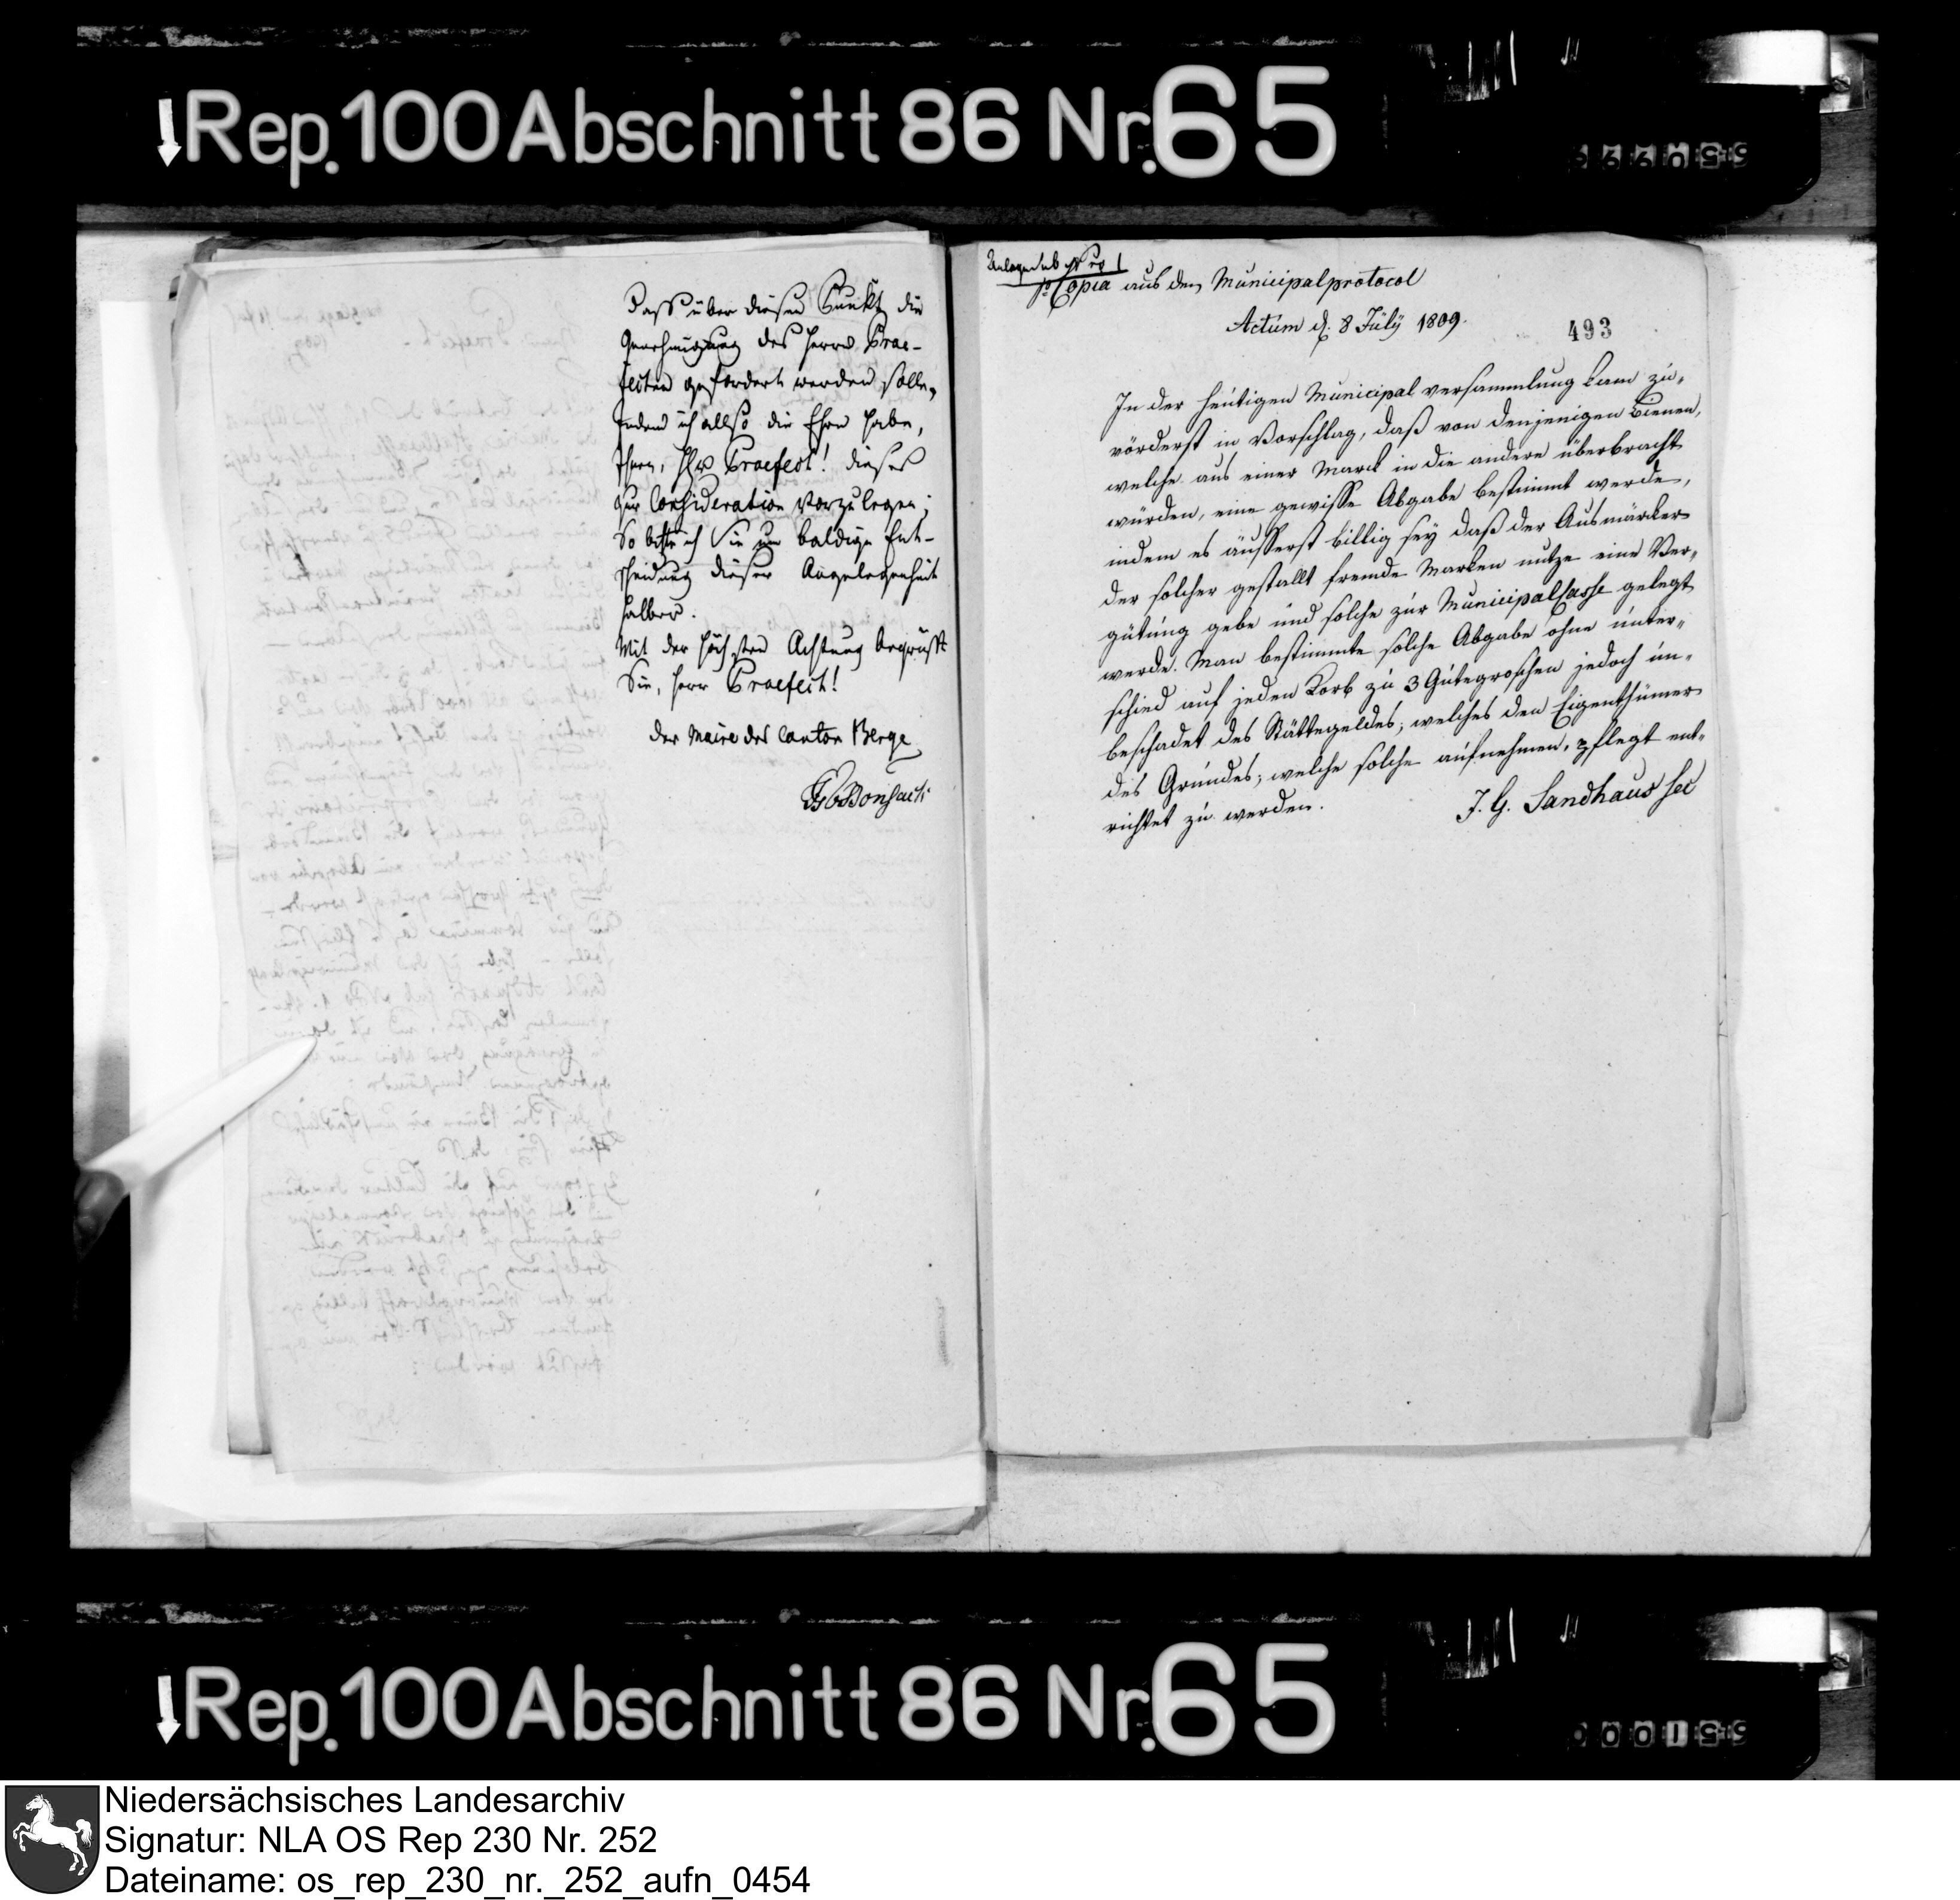 Rep. 100 Abschnitt 86 Nr. 65
Daß über diesen Punkt die
Genehmigung des Herrn Prae-
fecten gefordert werden solle,
Indem ich allso die Ehre habe,
Ihnen, Herr Praefect! dieses
zur Consideration vorzulegen;
So bitte ich Sie um baldige Ent-
scheidung dieser Angelegenheit
halber.
Mit der höchsten Achtung begrüßt
Sie, Herr Praefect!
Der Maire des Canton Berge
Anlage sub Nro 1
Copia aus dem Municipalprotocol
Actum d. 8 July 1809.
493
In der heutigen Municipal versammlung kam zu-
vörderst in Vorschlag, daß von denjenigen Bienen,
welche aus einer Marck in die andere überbracht
würden, eine gewisse Abgabe bestimmt werde,
indem es äusserst billig sey daß der Ausmärker
der solcher gestallt fremde Marken nutze eine Ver-
gütung gebe und solche zur MunicipalCasse gelegt
werde. Man bestimmte solche Abgabe ohne unter-
schied auf jeden Korb zu 3 Gutegroschen jedoch un-
beschadet des Stättegeldes, welches den Eigenthümer
des Grundes, welche solche aufnehmen, pflegt ent-
richtet zu werden.
J. G. Sandhaus sec
Rep. 100 Abschnitt 86 Nr. 65
Niedersächsisches Landesarchiv
Signatur: NLA OS Rep 230 Nr. 252
Dateiname: os_rep_230_nr._252_aufn_0454